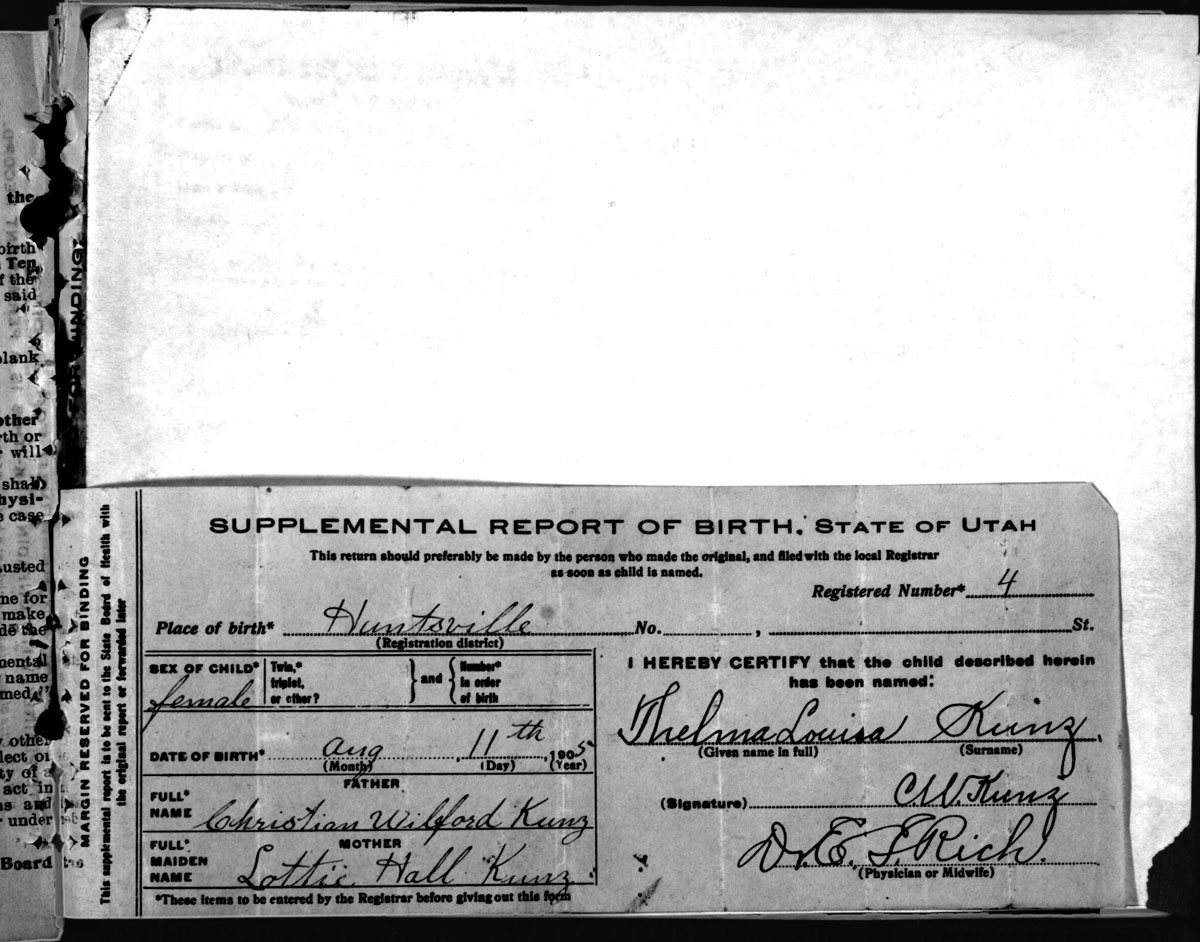 the
birth
Ten
f the
said
FOR BINDING
blank
other
rth or
will
shall
hysi-
case
usted
me for
make
de the
mental
name
med."
other
lect or
ty of a
act in
ns and
under
Board
MARGIN RESERVED FOR BINDING
This supplemental report is to be sent to the State Board of Health with
the original report or forwarded later
SUPPLEMENTAL REPORT OF BIRTH. STATE OF UTAH
This return should preferably be made by the person who made the original, and filed with the local Registrar
as soon as child is named.
Registered Number* 4
Place of birth* Huntsville No. , St.
(Registration district)
SEX OF CHILD* female
Twin,* triplet, or other? } and { Number* in order of birth
DATE OF BIRTH* Aug 11th, 1905
(Month) (Day) (Year)
FATHER
FULL* NAME Christian Wilford Kunz
MOTHER
FULL* MAIDEN NAME Lottie Hall Kunz
*These items to be entered by the Registrar before giving out this form
I HEREBY CERTIFY that the child described herein
has been named:
Thelma Louisa Kunz.
(Given name in full) (Surname)
(Signature) C.W. Kunz
Dr. E. I. Rich.
(Physician or Midwife)